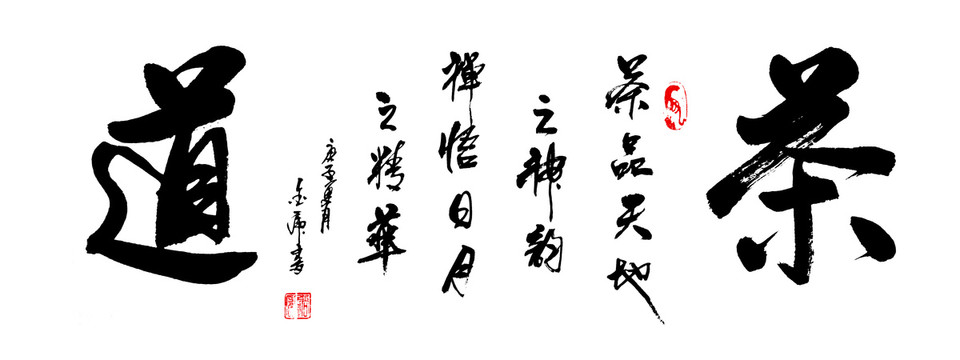 茶
茶品天地
之神韵
禅悟日月
之精華
道
庚子夏月